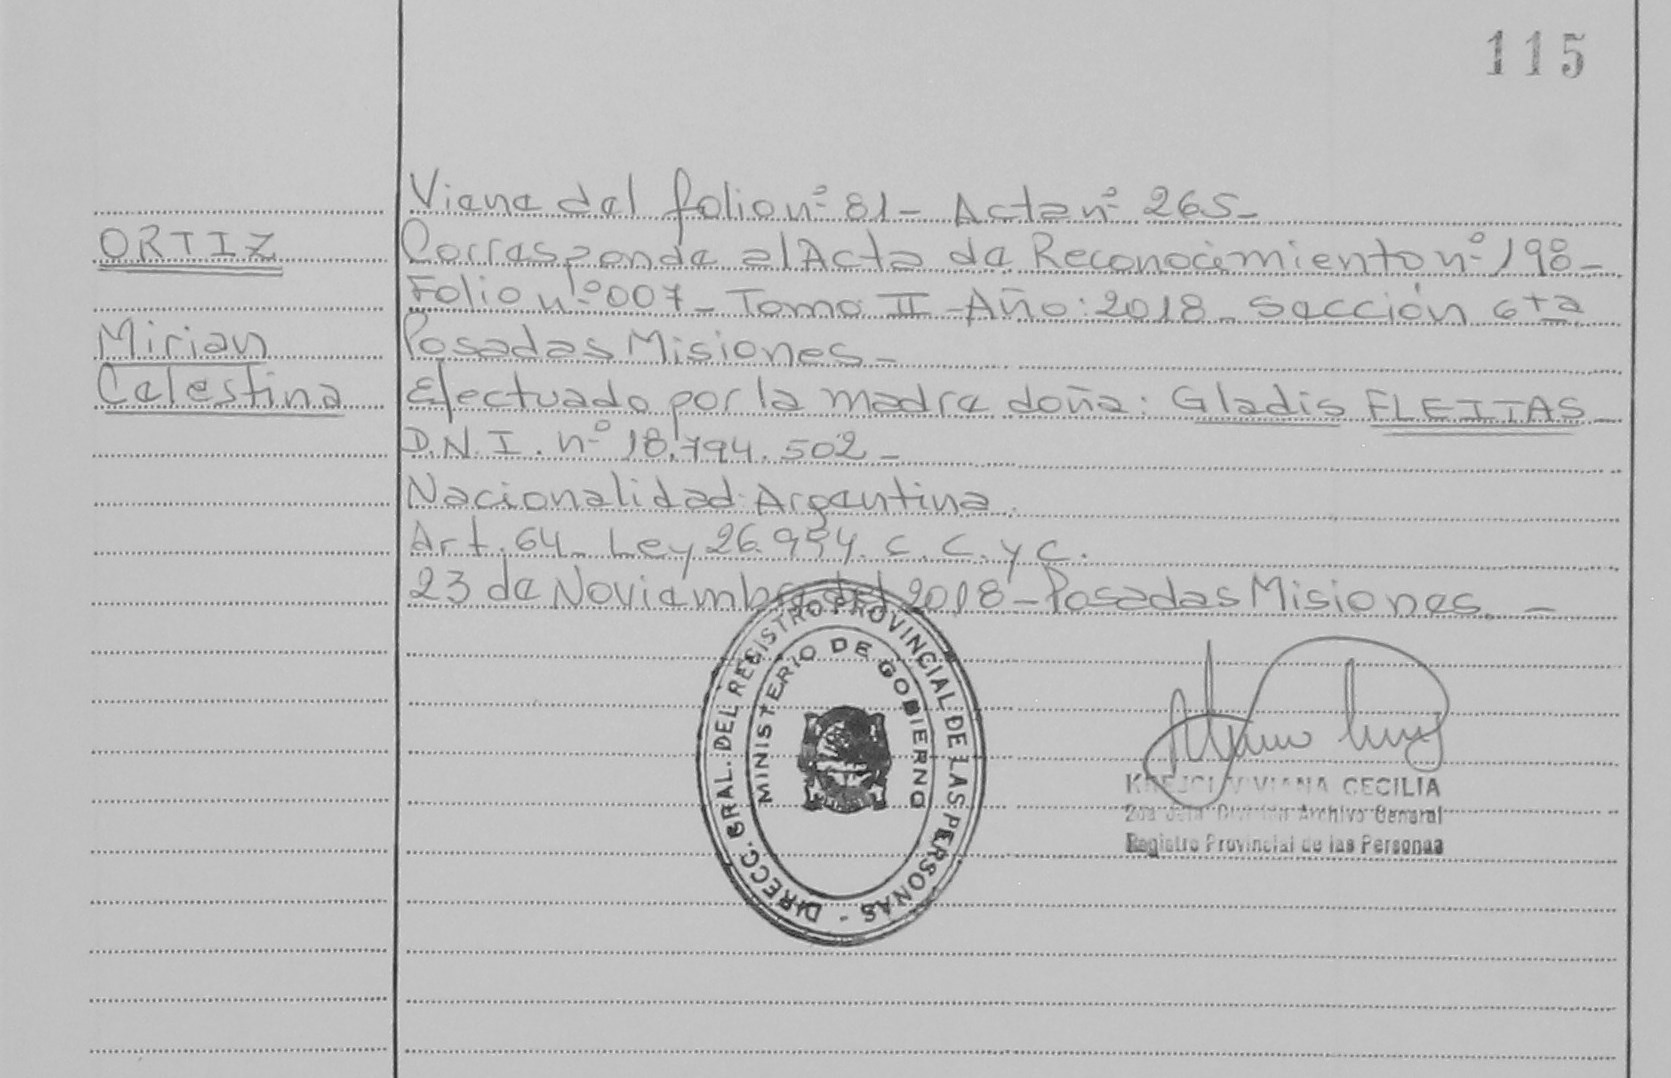 115
ORTIZ
Mirian
Celestina
Viene del folio nº 81 - Acta nº 265 -
Corresponde al Acta de Reconocimiento nº 198 -
Folio nº 007 - Tomo II - Año: 2018 - Sección 6ta
Posadas Misiones -
Efectuado por la madre doña: Gladis FLEITAS -
D.N.I. nº 18.794.502 -
Nacionalidad: Argentina.
Art. 64 - Ley 26.994. C. C. y C.
23 de Noviembre del 2018 - Posadas Misiones. -
DIRECC. GRAL. DEL REGISTRO PROVINCIAL DE LAS PERSONAS -
MINISTERIO DE GOBIERNO
KREJCI VIVIANA CECILIA
2da Jefa División Archivo General
Registro Provincial de las Personas